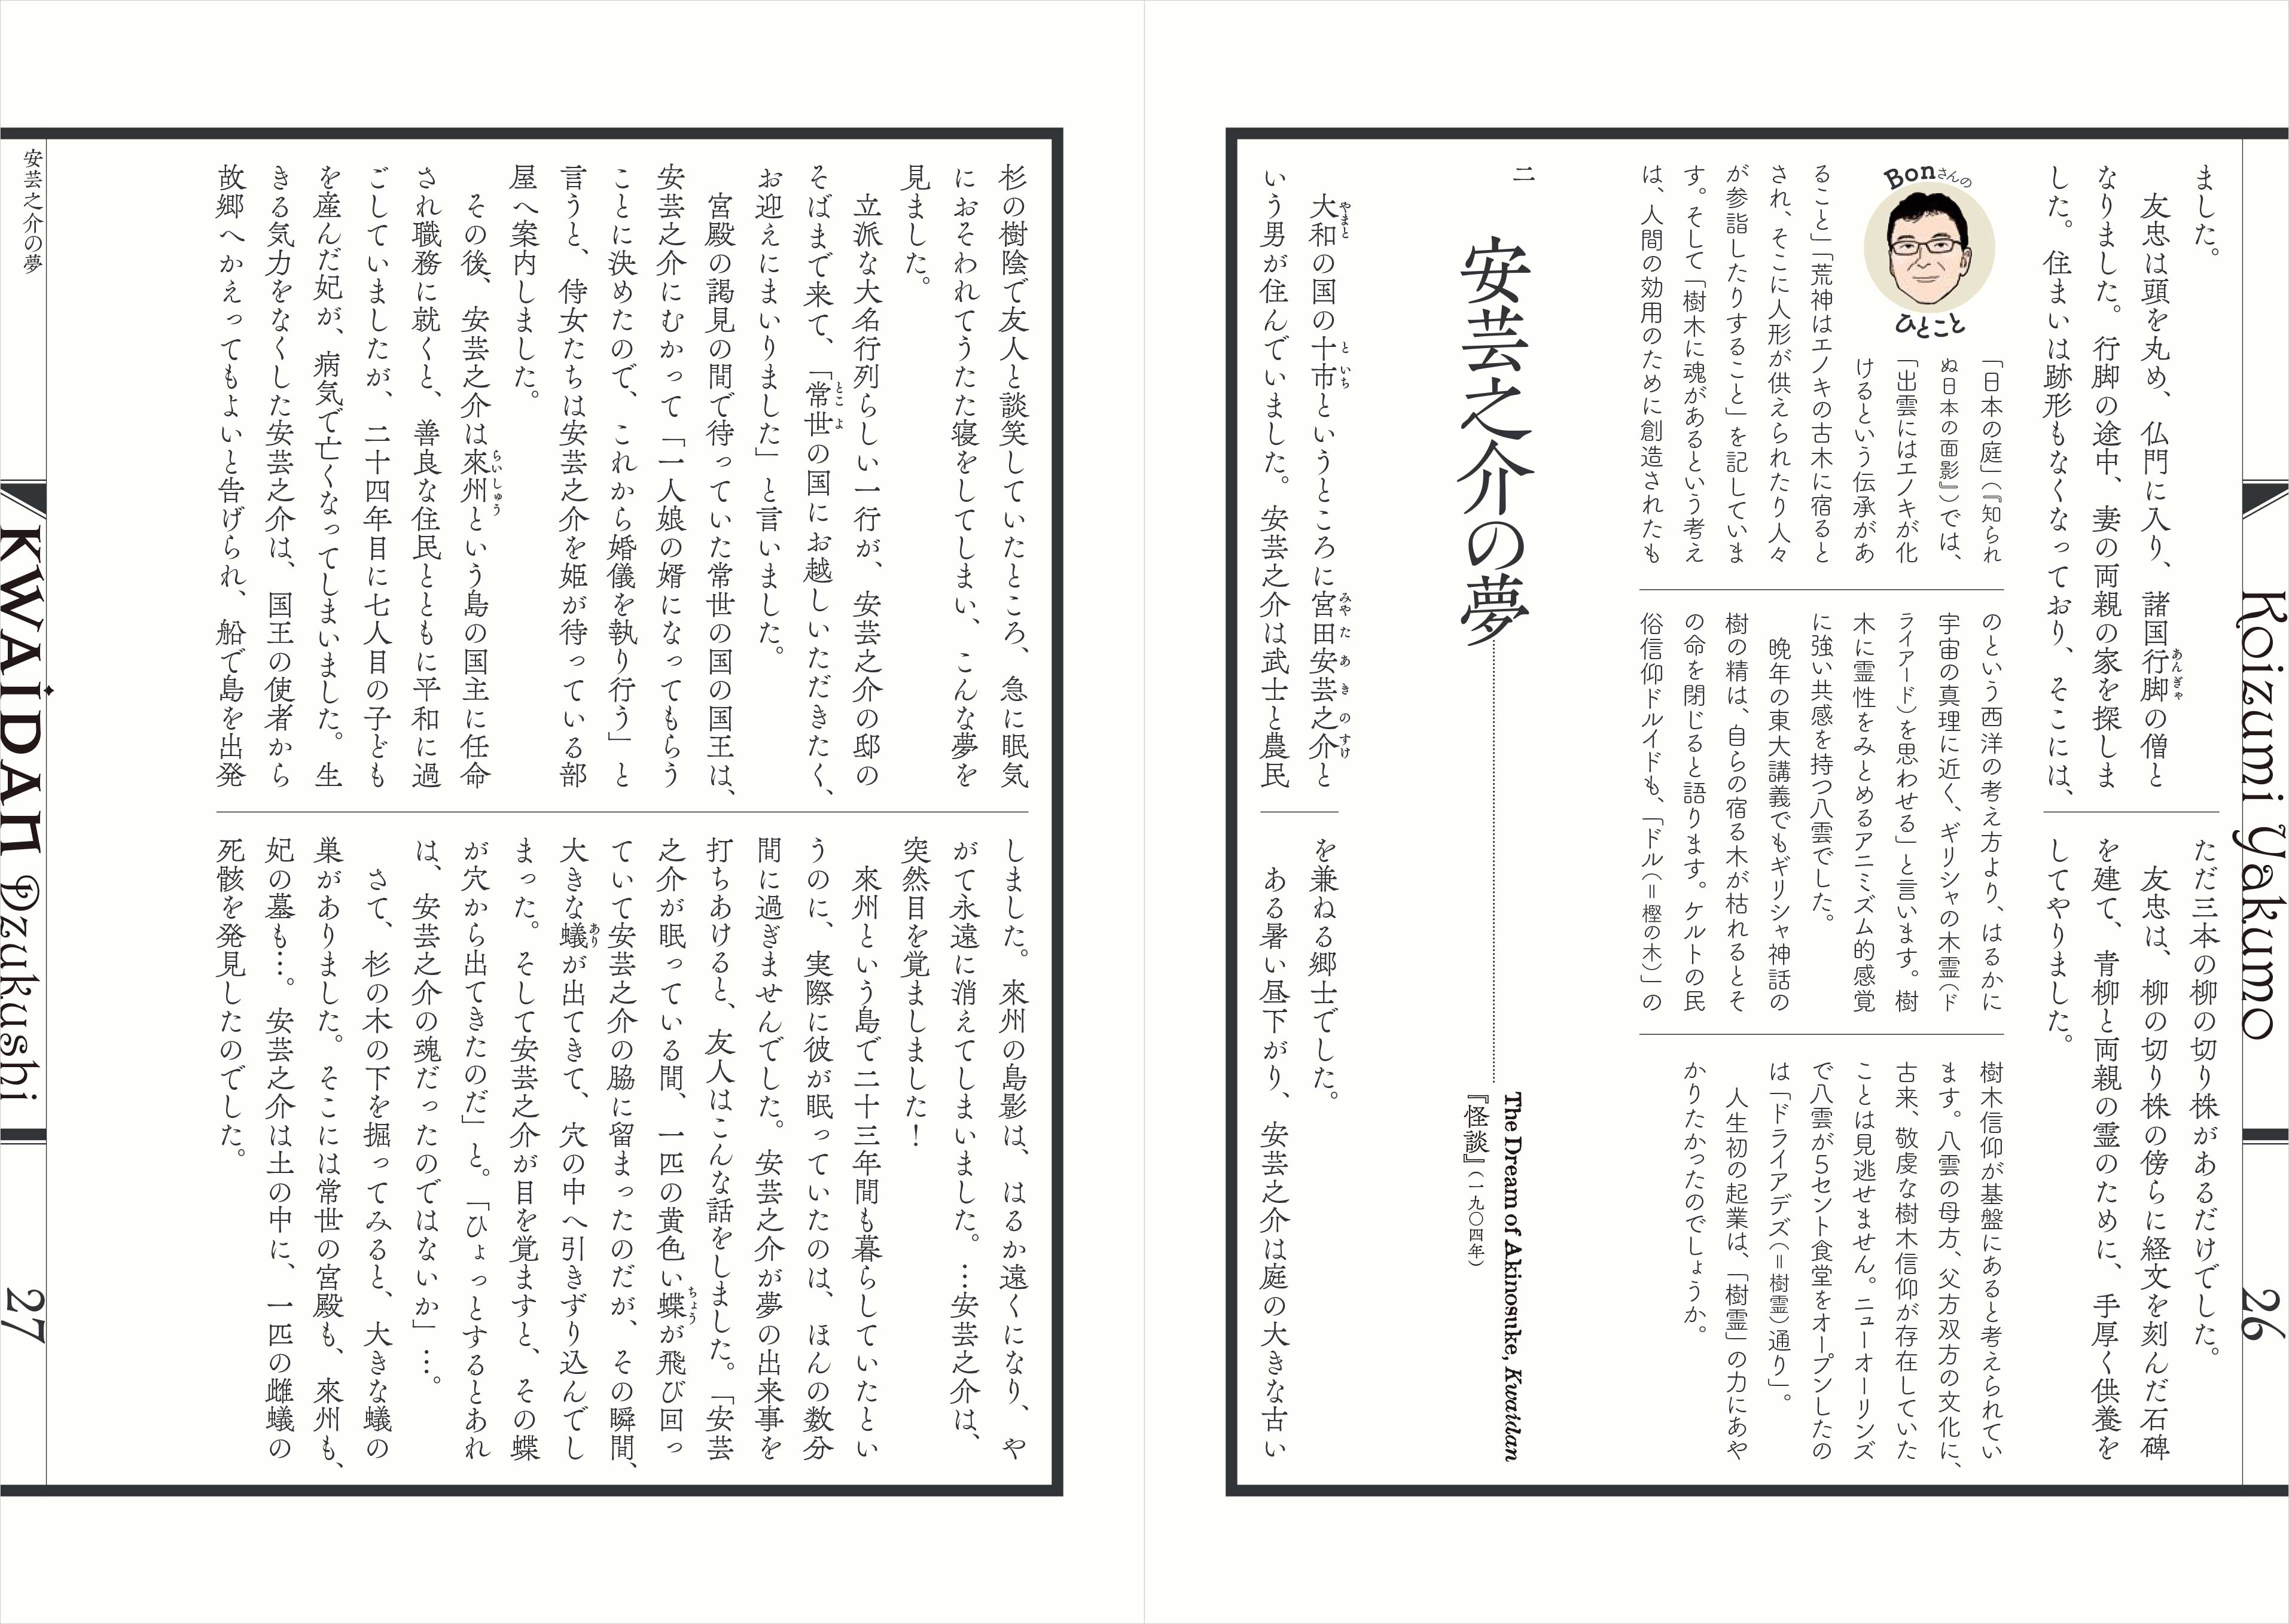 Koizumi Yakumo
26
ました。
　友忠は頭を丸め、仏門に入り、諸国行脚の僧と
なりました。行脚の途中、妻の両親の家を探しま
した。住まいは跡形もなくなっており、そこには、
ただ三本の柳の切り株があるだけでした。
　友忠は、柳の切り株の傍らに経文を刻んだ石碑
を建て、青柳と両親の霊のために、手厚く供養を
してやりました。
Bonさんの
ひとこと
「日本の庭」（『知られ
ぬ日本の面影』）では、
「出雲にはエノキが化
けるという伝承があ
ること」「荒神はエノキの古木に宿ると
され、そこに人形が供えられたり人々
が参詣したりすること」を記していま
す。そして「樹木に魂があるという考え
は、人間の効用のために創造されたも
のという西洋の考え方より、はるかに
宇宙の真理に近く、ギリシャの木霊（ド
ライアード）を思わせる」と言います。樹
木に霊性をみとめるアニミズム的感覚
に強い共感を持つ八雲でした。
　晩年の東大講義でもギリシャ神話の
樹の精は、自らの宿る木が枯れるとそ
の命を閉じると語ります。ケルトの民
俗信仰ドルイドも、「ドル（＝樫の木）」の
樹木信仰が基盤にあると考えられてい
ます。八雲の母方、父方双方の文化に、
古来、敬虔な樹木信仰が存在していた
ことは見逃せません。ニューオーリンズ
で八雲が5セント食堂をオープンしたの
は「ドライアデズ（＝樹霊）通り」。
　人生初の起業は、「樹霊」の力にあや
かりたかったのでしょうか。
二
安芸之介の夢
The Dream of Akinosuke, Kwaidan
『怪談』（一九〇四年）
　大和の国の十市というところに宮田安芸之介と
いう男が住んでいました。安芸之介は武士と農民
を兼ねる郷士でした。
　ある暑い昼下がり、安芸之介は庭の大きな古い
杉の樹陰で友人と談笑していたところ、急に眠気
におそわれてうたた寝をしてしまい、こんな夢を
見ました。
　立派な大名行列らしい一行が、安芸之介の邸の
そばまで来て、「常世の国にお越しいただきたく、
お迎えにまいりました」と言いました。
　宮殿の謁見の間で待っていた常世の国の国王は、
安芸之介にむかって「一人娘の婿になってもらう
ことに決めたので、これから婚儀を執り行う」と
言うと、侍女たちは安芸之介を姫が待っている部
屋へ案内しました。
　その後、安芸之介は來州という島の国主に任命
され職務に就くと、善良な住民とともに平和に過
ごしていましたが、二十四年目に七人目の子ども
を産んだ妃が、病気で亡くなってしまいました。生
きる気力をなくした安芸之介は、国王の使者から
故郷へかえってもよいと告げられ、船で島を出発
しました。來州の島影は、はるか遠くになり、や
がて永遠に消えてしまいました。…安芸之介は、
突然目を覚ましました！
　來州という島で二十三年間も暮らしていたとい
うのに、実際に彼が眠っていたのは、ほんの数分
間に過ぎませんでした。安芸之介が夢の出来事を
打ちあけると、友人はこんな話をしました。「安芸
之介が眠っている間、一匹の黄色い蝶が飛び回っ
ていて安芸之介の脇に留まったのだが、その瞬間、
大きな蟻が出てきて、穴の中へ引きずり込んでし
まった。そして安芸之介が目を覚ますと、その蝶
が穴から出てきたのだ」と。「ひょっとするとあれ
は、安芸之介の魂だったのではないか」…。
　さて、杉の木の下を掘ってみると、大きな蟻の
巣がありました。そこには常世の宮殿も、來州も、
妃の墓も…。安芸之介は土の中に、一匹の雌蟻の
死骸を発見したのでした。
安芸之介の夢
KWAIDAN Dzukushi
27